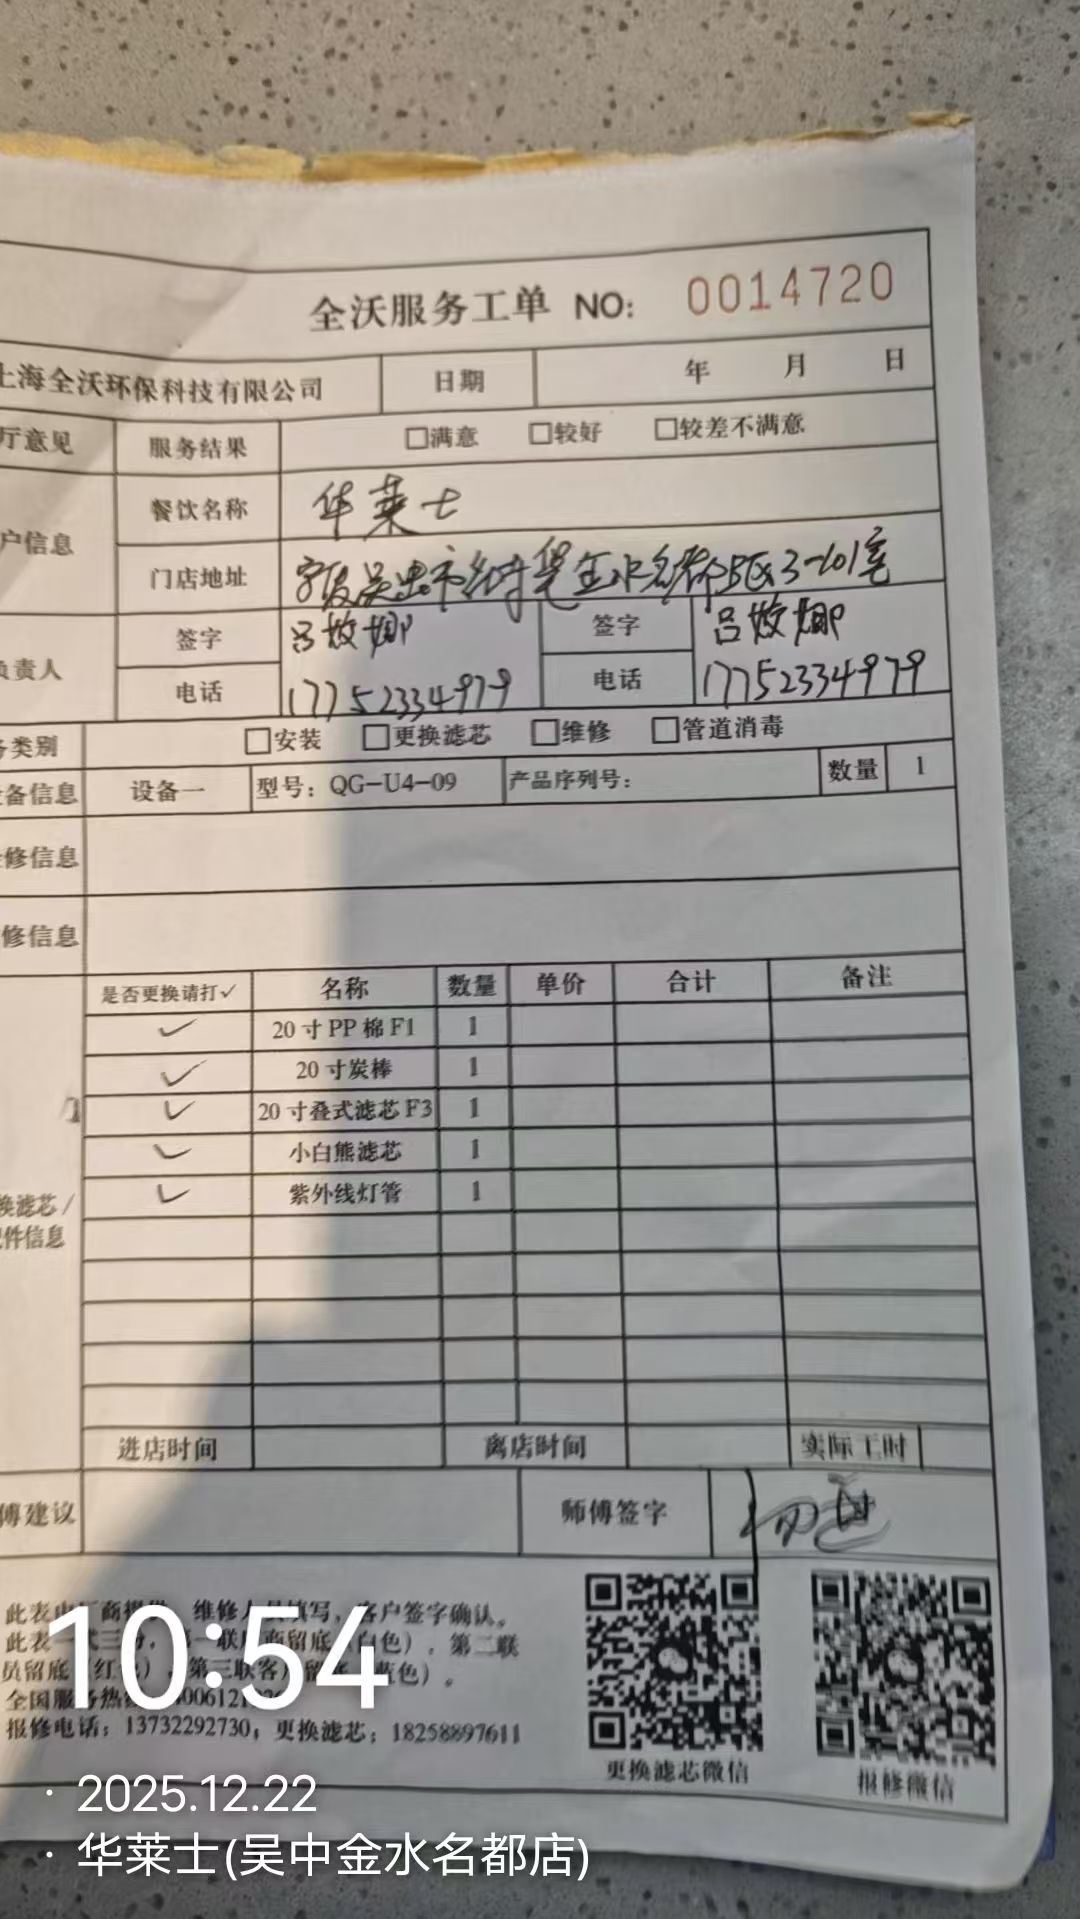 全沃服务工单 NO: 0014720
上海全沃环保科技有限公司 日期 年 月 日
厅意见 服务结果 □满意 □较好 □较差不满意
户信息 餐饮名称 华莱士
门店地址 金水名都B区3-101室
负责人 签字 吕姣娜 签字 吕姣娜
电话 17752334979 电话 17752334979
务类别 □安装 □更换滤芯 □维修 □管道消毒
设备信息 设备一 型号：QG-U4-09 产品序列号： 数量 1
修信息
修信息
是否更换请打✓ 名称 数量 单价 合计 备注
✓ 20寸PP棉F1 1
✓ 20寸炭棒 1
✓ 20寸叠式滤芯F3 1
✓ 小白熊滤芯 1
✓ 紫外线灯管 1
换滤芯/
配件信息
进店时间 离店时间 实际工时
傅建议 师傅签字
此表由厂商提供，维修人员填写，客户签字确认。
此表一式三份，第一联厂商留底（白色），第二联
员留底（红色），第三联客户留底（蓝色）。
全国服务热线
报修电话：13732292730；更换滤芯：18258897611
更换滤芯微信 报修微信
10:54
· 2025.12.22
· 华莱士(吴中金水名都店)